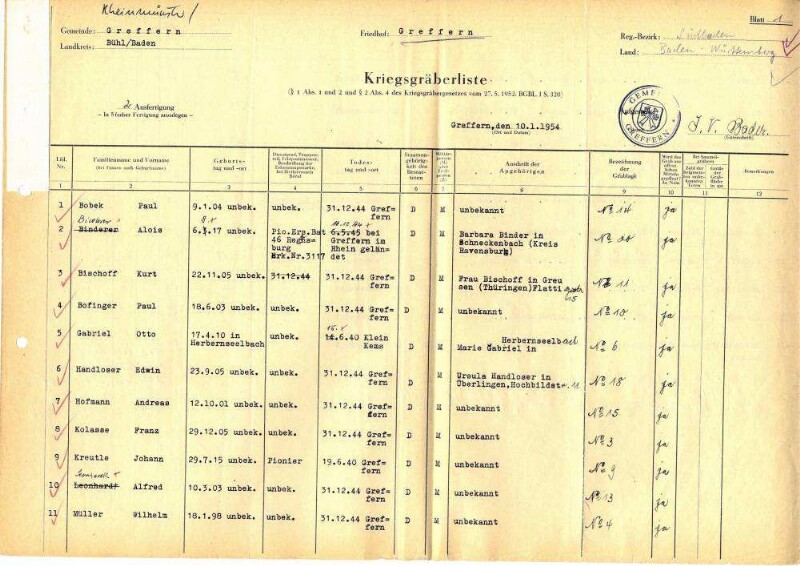 Rheinmünster /
Gemeinde: Greffern
Landkreis: Bühl/Baden
Friedhof: Greffern
Blatt 1
Reg.-Bezirk: Südbaden
Land: Baden-Württemberg
Kriegsgräberliste
(§ 1 Abs. 1 und 2 und § 2 Abs. 4 des Kriegsgräbergesetzes vom 27. 5. 1952. BGBl. I S. 320)
2. Ausfertigung
– In 5facher Fertigung anzulegen –
Greffern, den 10.1.1954
(Ort und Datum)
GEMEINDE GREFFERN
I. V. Bader.
(Unterschrift)
Lfd. Nr. Familienname und Vorname Geburts- tag und -ort Todes- tag und -ort Anschrift der Angehörigen Bezeichnung der Grablage Bemerkungen
1 2 3 4 5 6 7 8 9 10 11 12
1 Bobek Paul 9.1.04 unbek. unbek. 31.12.44 Gref- D M unbekannt No 14 ja
fern
2 Binderer Alois 6.3.17 unbek. Pio.Ers.Bat 6.5.45 bei D M Barbara Binder in No 20 ja
46 Regns- Greffern in Schneckenbach (Kreis
burg Rhein gelän- Ravensburg)
Erk.Nr.3117 det
3 Bischoff Kurt 22.11.05 unbek. 31.12.44 31.12.44 Gref- D M Frau Bischoff in Greu No 11 ja
fern sen (Thüringen) Flatti
4 Bofinger Paul 18.6.03 unbek. unbek. 31.12.44 Gref- D M unbekannt No 10 ja
fern
5 Gabriel Otto 17.4.10 in unbek. 14.6.40 Klein D M Herbernseelbach No 6 ja
Herbernseelbach Kems Marie Gabriel in
6 Handloser Edwin 23.9.05 unbek. unbek. 31.12.44 Gref- D M Ursula Handloser in No 18 ja
fern Überlingen, Hochbildstr. 11
7 Hofmann Andreas 12.10.01 unbek. unbek. 31.12.44 Gref- D M unbekannt No 15 ja
fern
8 Kolasse Franz 29.12.05 unbek. unbek. 31.12.44 Gref- D M unbekannt No 3 ja
fern
9 Kreutle Johann 29.7.15 unbek. Pionier 19.6.40 Gref- D M unbekannt No 9 ja
fern
10 Leonhardt Alfred 10.3.03 unbek. unbek. 31.12.44 Gref- D M unbekannt No 13 ja
fern
11 Müller Wilhelm 18.1.98 unbek. unbek. 31.12.44 Gref- D M unbekannt No 4 ja
fern